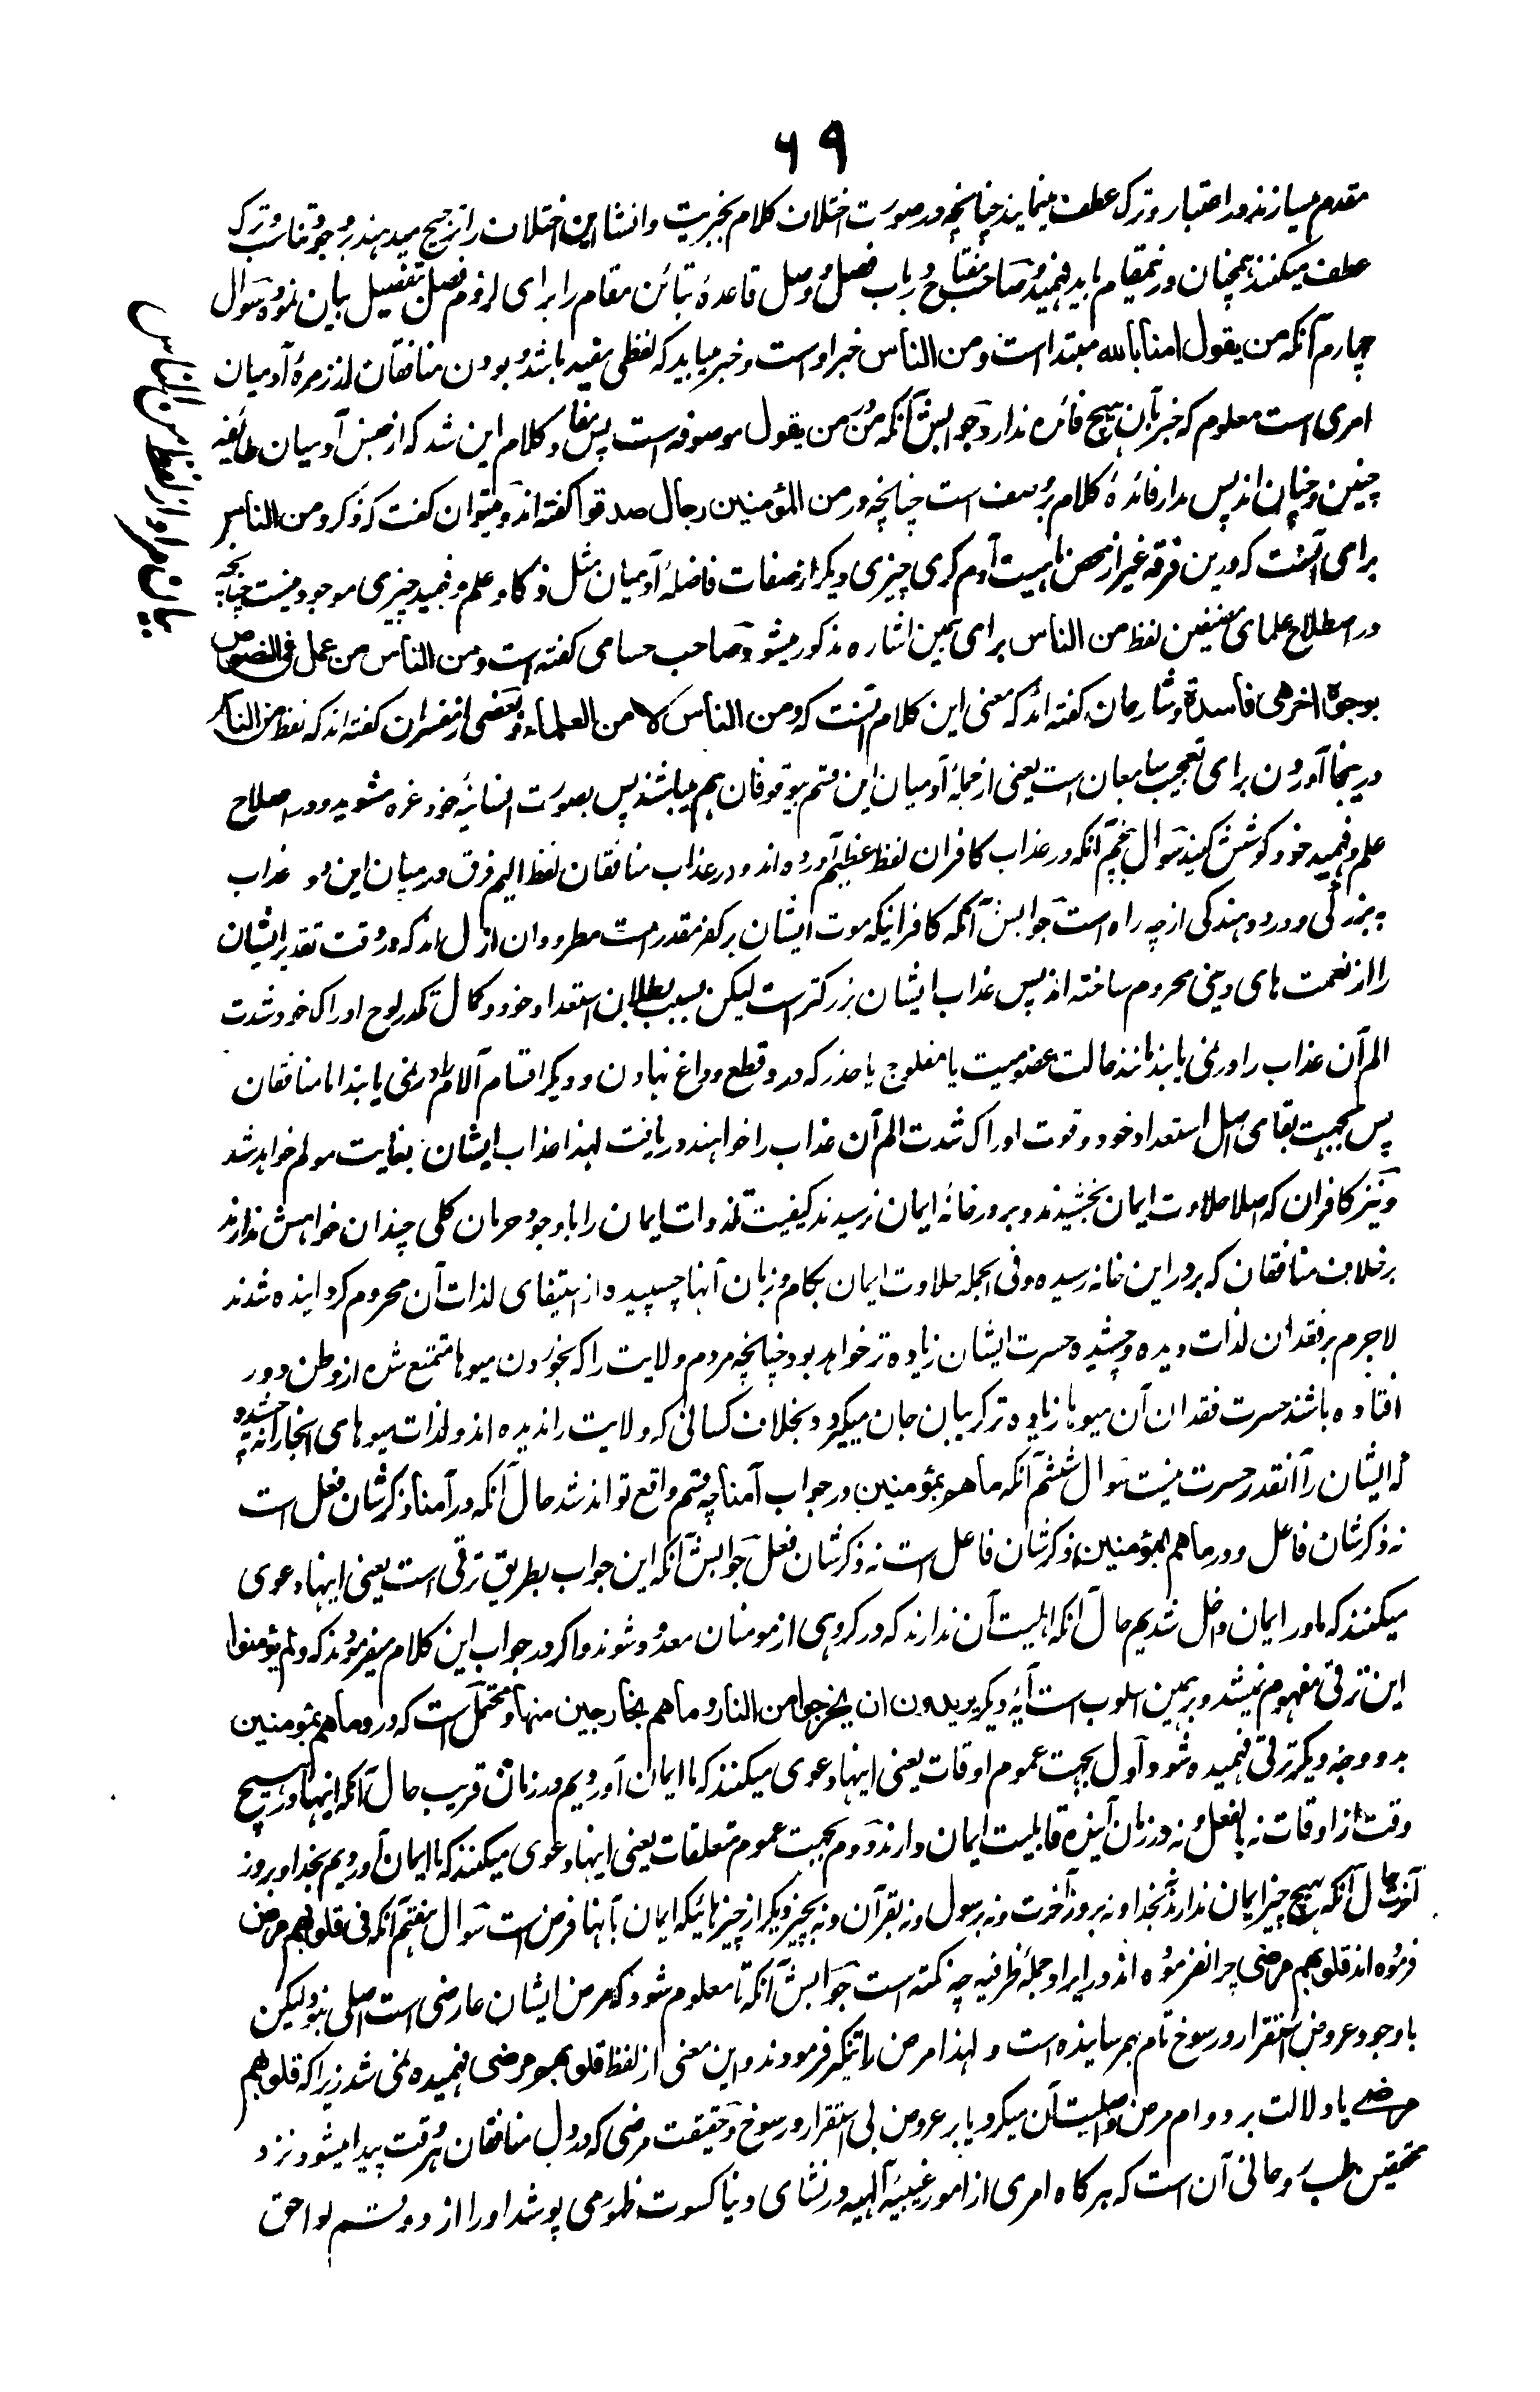 ۶۹
مقدم میسازند در اعتبار و ترک عطف مینمایند چنانچه در صورت اختلاف کلام بخبریت و انشا این اختلاف را ترجیح میدهند بر وجوه تناسب و ترک
عطف میکنند همچنان درینمقام باید فهمید و صاحب مفتاح در باب فصل و وصل قاعدهٔ تبائن مقام را برای لزوم فصل بتفصیل بیان نموده سوال
چهارم آنکه من یقول امنا بالله مبتدا است و من الناس خبر او است و خبر میباید که لفظی مفید باشد و بودن منافقان از زمرهٔ آدمیان
امری است معلوم که خبر بآن هیچ فائده ندارد جوابش آنکه من در من یقول موصوفه است پس مفاد کلام این شد که از جنس آدمیان طائفه
چنین و چنان اند پس مدار فائدهٔ کلام بر وصف است چنانچه در من المؤمنین رجال صدقوا گفته اند و میتوان گفت که ذکر و من الناس
برای آنست که درین فرقه غیر از محض ماهیت آدم گری چیزی دیگر از صفات فاضلهٔ آدمیان مثل ذکا و علم و فهمید چیزی موجود نیست چنانچه
در اصطلاح علمای مصنفین لفظ من الناس برای همین اشاره مذکور میشود صاحب حسامی گفته است و من الناس من عمل فی النصوص
بوجوه اخر هی فاسدة و شارحان گفته اند که معنی این کلام آنست که و من الناس لا من العلماء و بعضی از مفسران گفته اند که لفظ من الناس
درینجا آوردن برای تعجیب سامعان است یعنی از جملهٔ آدمیان این قسم بیوقوفان هم میباشند پس بصورت انسانیهٔ خود غره مشوید و در اصلاح
علم و فهمید خود کوشش کنید سوال پنجم آنکه در عذاب کافران لفظ عظیم آورده اند و در عذاب منافقان لفظ الیم فرق درمیان این دو عذاب
به بزرگی و درد دهندگی از چه راه است جوابش آنکه کافرانیکه موت ایشان بر کفر مقدر است مطرودان ازل اند که در وقت تقدیر ایشان
را از نعمت های دینی محروم ساخته اند پس عذاب ایشان بزرگتر است لیکن بسبب بطلان استعداد خود و کمال تکدر لوح ادراک خود شدت
الم آن عذاب را در نمی یابند مانند حالت عضو میت یا مفلوج یا خدر که درد قطع و داغ نهادن و دیگر اقسام آلام را در نمی یابند اما منافقان
پس بجهت بقای اصل استعداد خود و قوت ادراک شدت الم آن عذاب را خواهند دریافت لهذا عذاب ایشان بغایت مولم خواهد شد
و نیز کافران که اصلا حلاوت ایمان نچشیدند و بر در خانهٔ ایمان نرسیدند کیفیت لذذات ایمان را با وجود حرمان کلی چندان خواهش ندارند
برخلاف منافقان که بر در این خانه رسیده و فی الجمله حلاوت ایمان بکام و زبان آنها چسپیده از استیفای لذات آن محروم گردانیده شدند
لاجرم بر فقدان لذات دیده و چشیده حسرت ایشان زیاده تر خواهد بود چنانچه مردم ولایت را که بخوردن میوها متمتع شده از وطن دور
افتاده باشند حسرت فقدان آن میوها زیاده تر گریبان جان میگیرد بخلاف کسانی که ولایت را ندیده اند و لذات میوهای انجا را نه چشیده
که ایشان را آنقدر حسرت نیست سوال ششم آنکه ما هم بمؤمنین در جواب آمنا چه قسم واقع تواند شد حال آنکه در آمنا ذکر شان فعل است
نه ذکر شان فاعل و در ما هم بمؤمنین ذکر شان فاعل است نه ذکر شان فعل جوابش آنکه این جواب بطریق ترقی است یعنی اینها دعوی
میکنند که ما در ایمان داخل شدیم حال آنکه اهلیت آن ندارند که در گروهی از مومنان معدود شوند و اگر در جواب این کلام میفرمودند که و لم یؤمنوا
این ترقی مفهوم نمیشد و بر همین اسلوب است آیهٔ دیگر یریدون ان یخرجوا من النار و ما هم بخارجین منها و محتمل است که در و ما هم بمؤمنین
بدو وجه دیگر ترقی فهمیده شود اول بجهت عموم اوقات یعنی اینها دعوی میکنند که ما ایمان آوردیم در زمان قریب حال آنکه اینها در هیچ
وقت از اوقات نه بالفعل و نه در زمان آینده قابلیت ایمان دارند دوم بجهت عموم متعلقات یعنی اینها دعوی میکنند که ما ایمان آوردیم بخدا و بروز
آخرت حال آنکه بهیچ چیز ایمان ندارند نه بخدا و نه بروز آخرت و نه برسول و نه بقرآن و نه بچیز دیگر از چیزهائیکه ایمان بآنها فرض است سوال هفتم آنکه فی قلوبهم مرض
فرموده اند قلوبهم مرضی چرا نفرموده اند در ایراد جملهٔ ظرفیه چه نکته است جوابش آنکه تا معلوم شود که مرض ایشان عارضی است اصلی نبود لیکن
با وجود عروض استقرار و رسوخ تام بهم رسانیده است و لهذا مرض را تنکیر فرمودند و این معنی از لفظ قلوبهم مرضی فهمیده نمی شد زیرا که قلوبهم
مرضی یا دلالت بر دوام مرض و اصلیت آن میکرد یا بر عروض بی استقرار و رسوخ و حقیقت مرضی که در دل منافقان هر وقت پیدا میشود نزد
محققین طب روحانی آن است که هر گاه امری از امور غیبیهٔ الٓهیه در نشای دنیا کسوت ظهور می پوشد او را از دو قسم لواحق
بیان مراد از لفظ من الناس